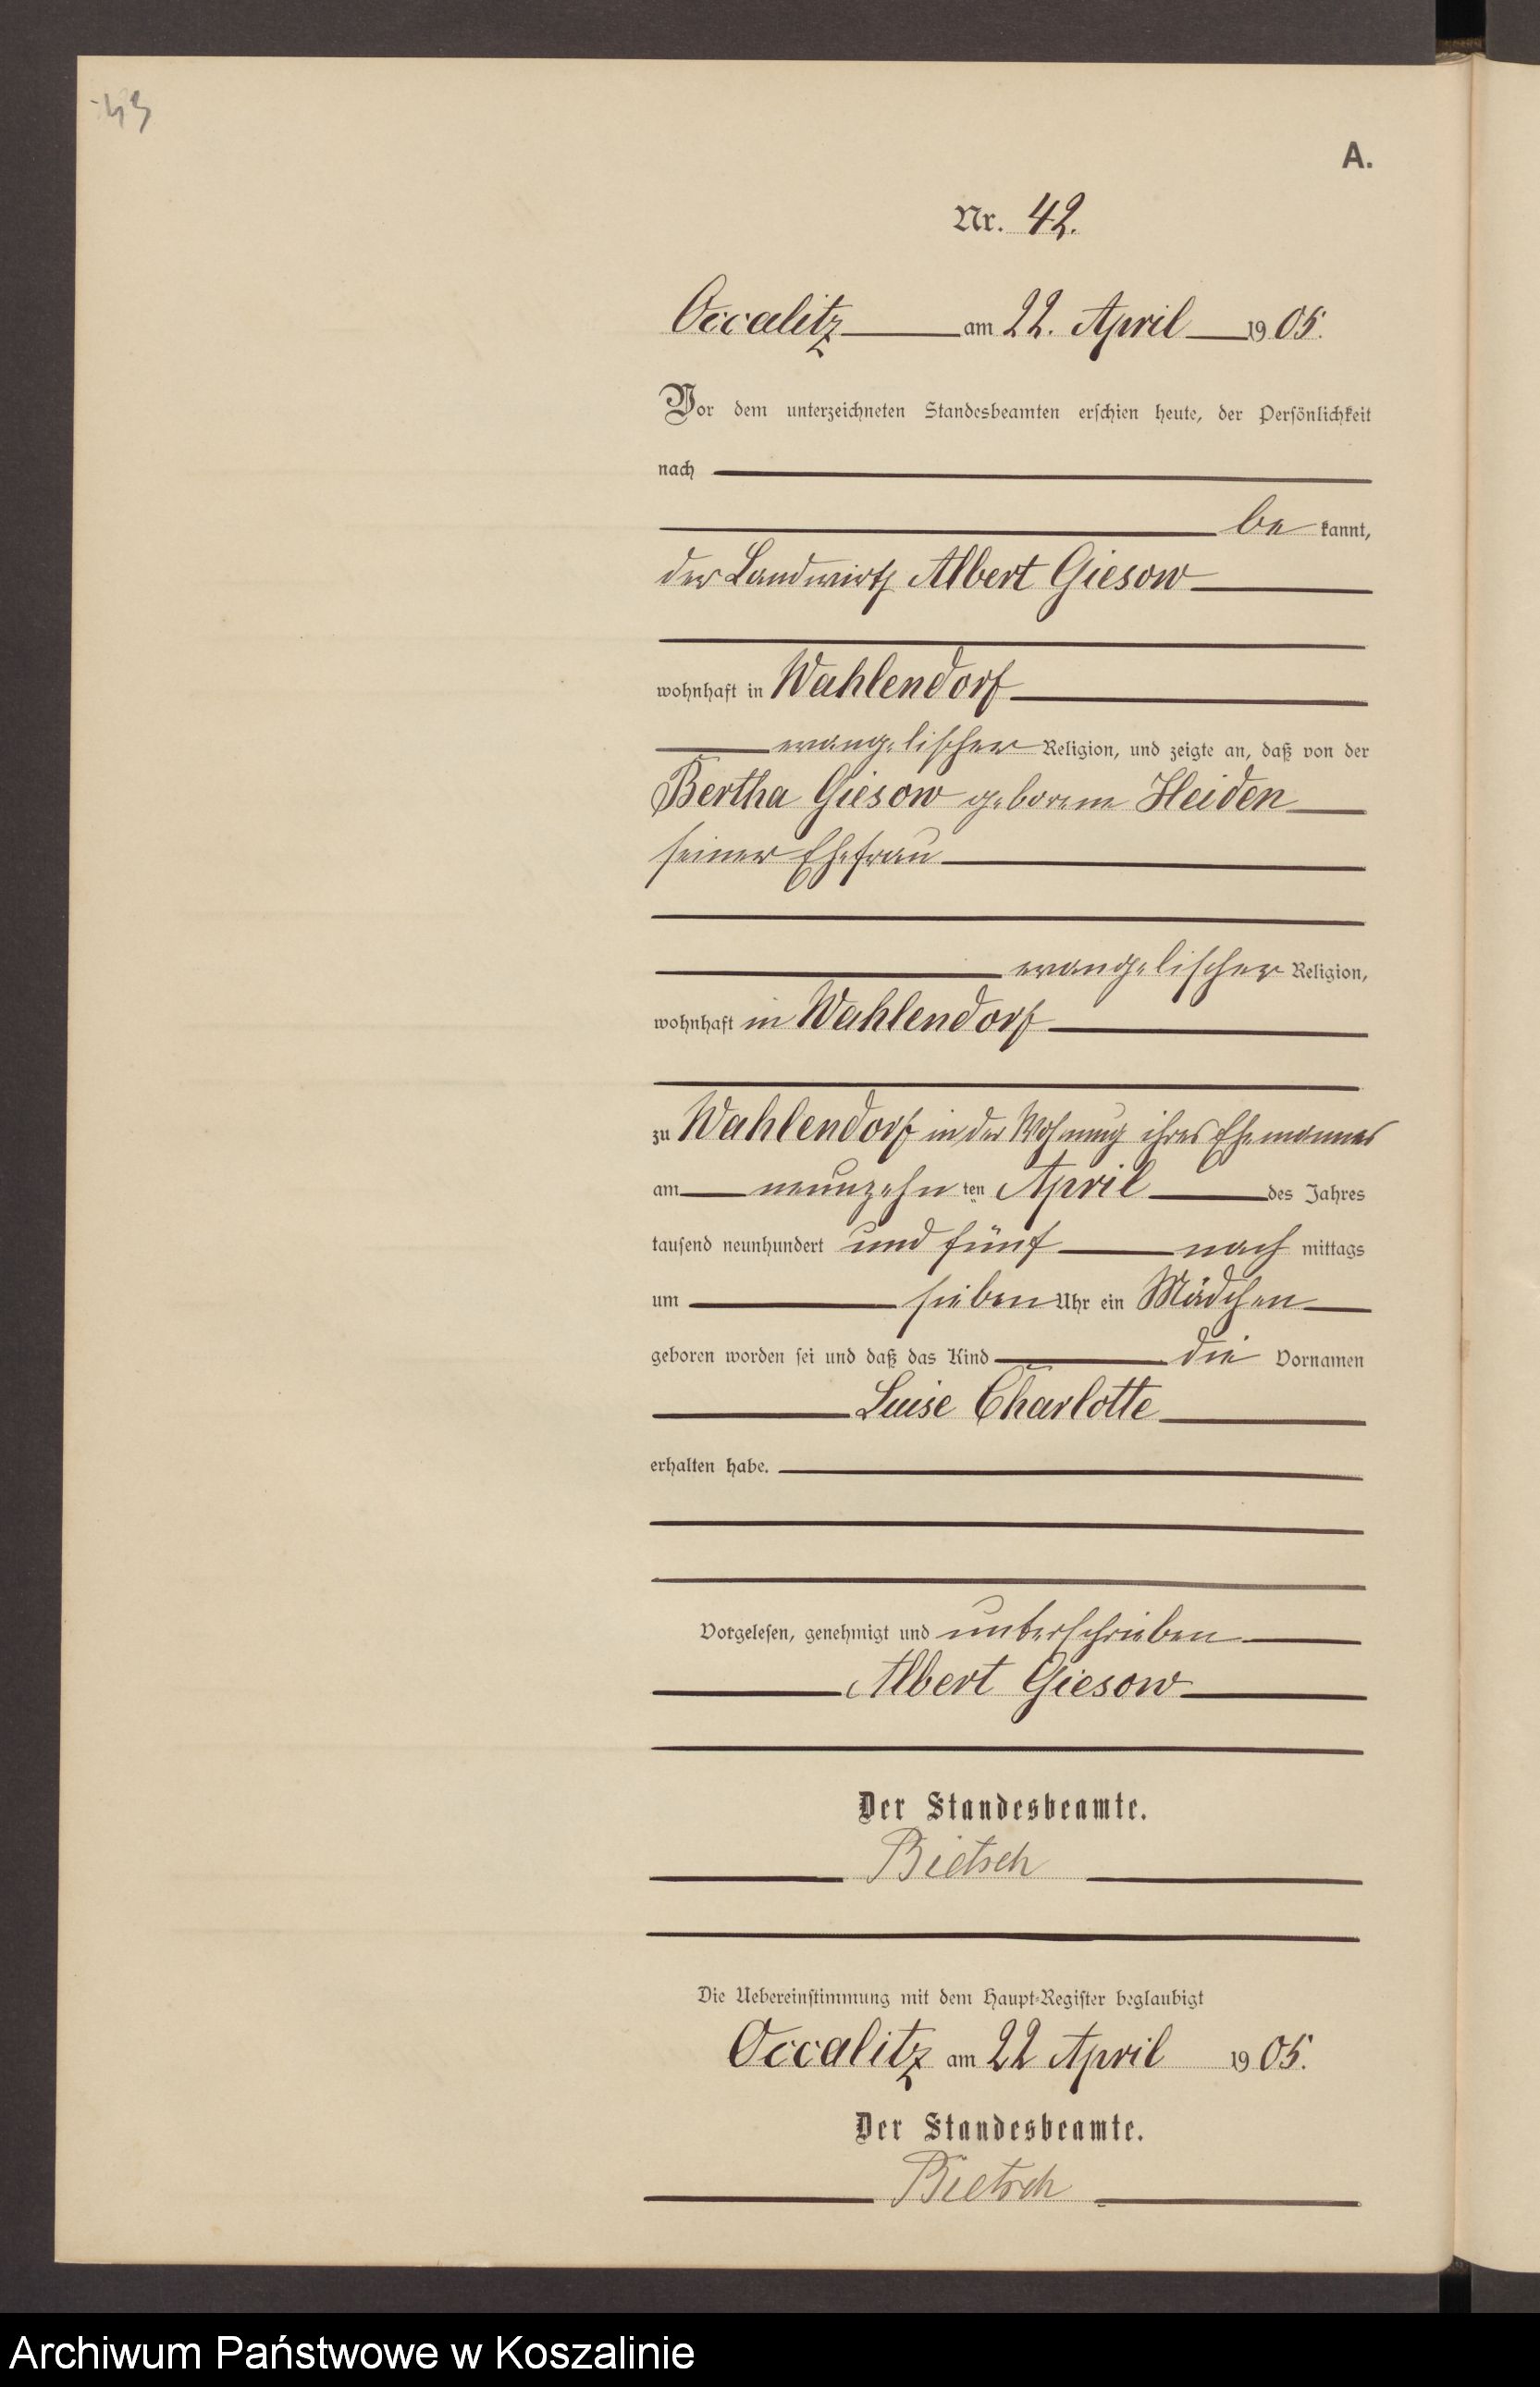 43
A.
Nr. 42.
Occalitz am 22. April 1905.
Vor dem unterzeichneten Standesbeamten erschien heute, der Persönlichkeit
nach
be kannt,
der Landwirth Albert Giesow
wohnhaft in Wahlendorf
evangelischer Religion, und zeigte an, daß von der
Bertha Giesow geborene Heiden
seiner Ehefrau
evangelischer Religion,
wohnhaft in Wahlendorf
zu Wahlendorf in der Wohnung ihres Ehemannes
am neunzehn ten April des Jahres
tausend neunhundert und fünf nach mittags
um sieben Uhr ein Mädchen
geboren worden sei und daß das Kind die Vornamen
Luise Charlotte
erhalten habe.
Vorgelesen, genehmigt und unterschrieben
Albert Giesow
Der Standesbeamte.
Bietsch
Die Uebereinstimmung mit dem Haupt-Register beglaubigt
Occalitz am 22 April 1905.
Der Standesbeamte.
Bietsch
Archiwum Państwowe w Koszalinie